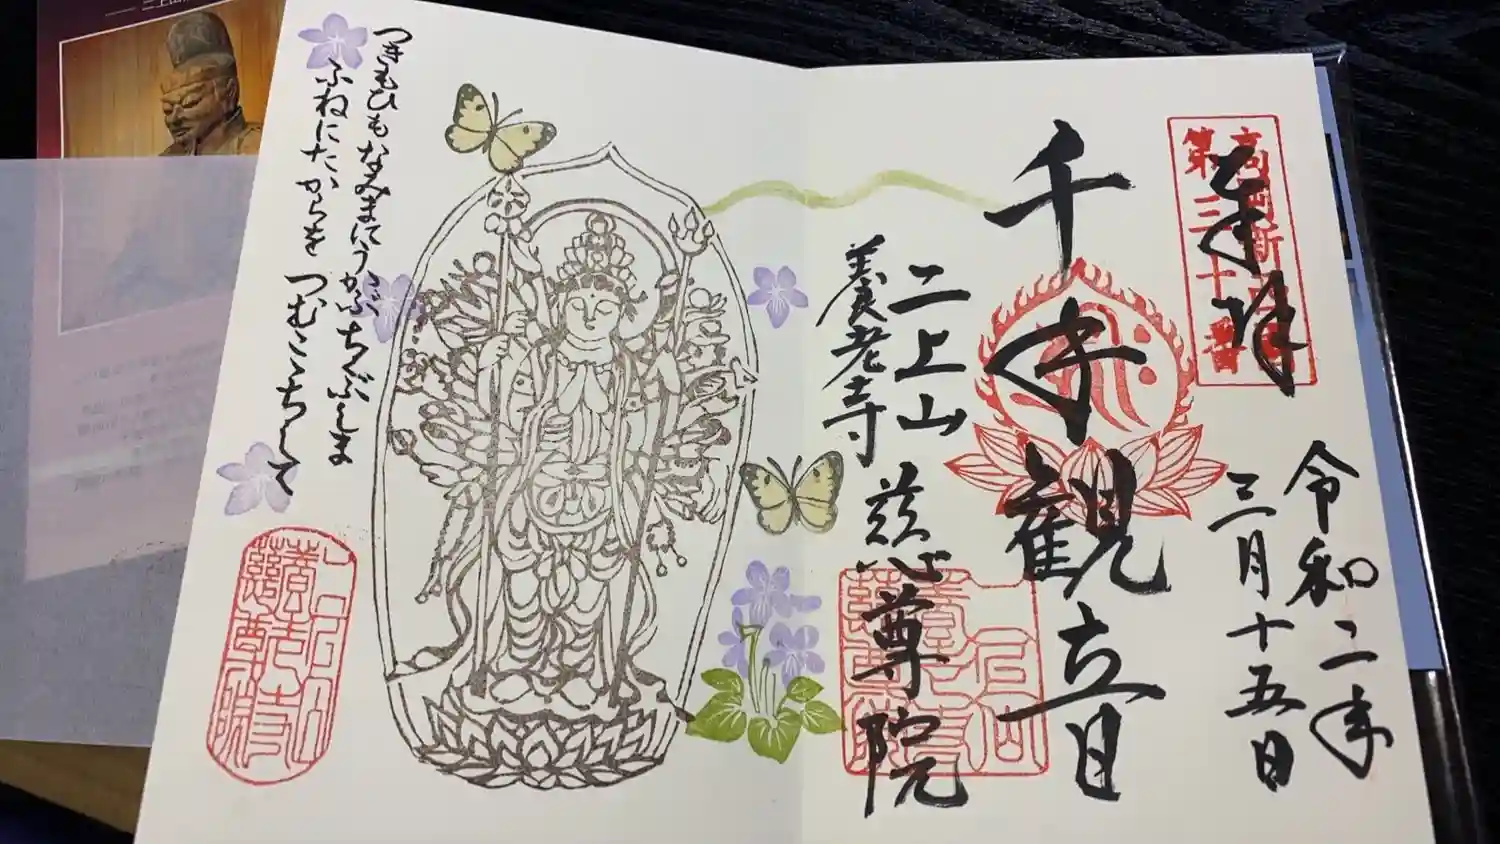 奉拝
令和二年
三月十五日
千手観音
二上山
養老寺
慈尊院
つきもひもなみまにうかぶちくぶしま
ふねにたからを つむここちして